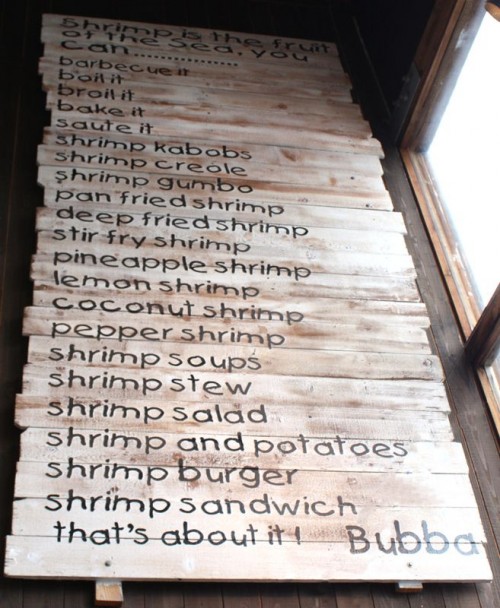 Shrimp is the fruit
of the Sea, you
can................
barbecue it
boil it
broil it
bake it
saute it
shrimp kabobs
shrimp creole
shrimp gumbo
pan fried shrimp
deep fried shrimp
stir fry shrimp
pineapple shrimp
lemon shrimp
coconut shrimp
pepper shrimp
shrimp soups
shrimp stew
shrimp salad
shrimp and potatoes
shrimp burger
shrimp sandwich
that's about it! Bubba